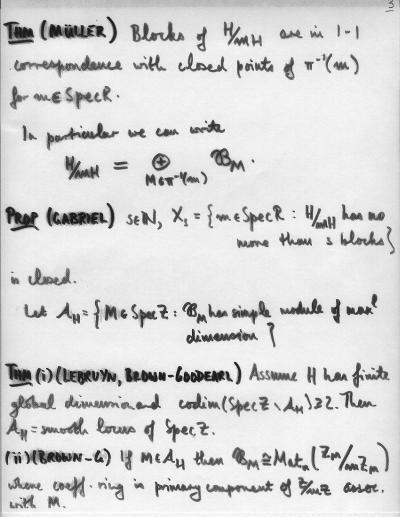 3
THM (MÜLLER) Blocks of H/mH are in 1-1
correspondence with closed points of π⁻¹(m)
for m∈SpecR.
In particular we can write
H/mH = ⊕ 𝓑_M.
M∈π⁻¹(m)
PROP (GABRIEL) s∈ℕ, X_s = {m∈SpecR : H/mH has no
more than s blocks}
is closed.
Let A_H = {M∈SpecZ : 𝓑_M has simple module of maxˡ
dimension}
THM (i) (LEBRUYN, BROWN-GOODEARL) Assume H has finite
global dimension and codim(SpecZ \ A_H) ≥ 2. Then
A_H = smooth locus of SpecZ.
(ii) (BROWN-G) If M∈A_H then 𝓑_M ≅ Mat_n(Z_M/mZ_M)
where coeff. ring is primary component of Z/mZ assoc.
with M.